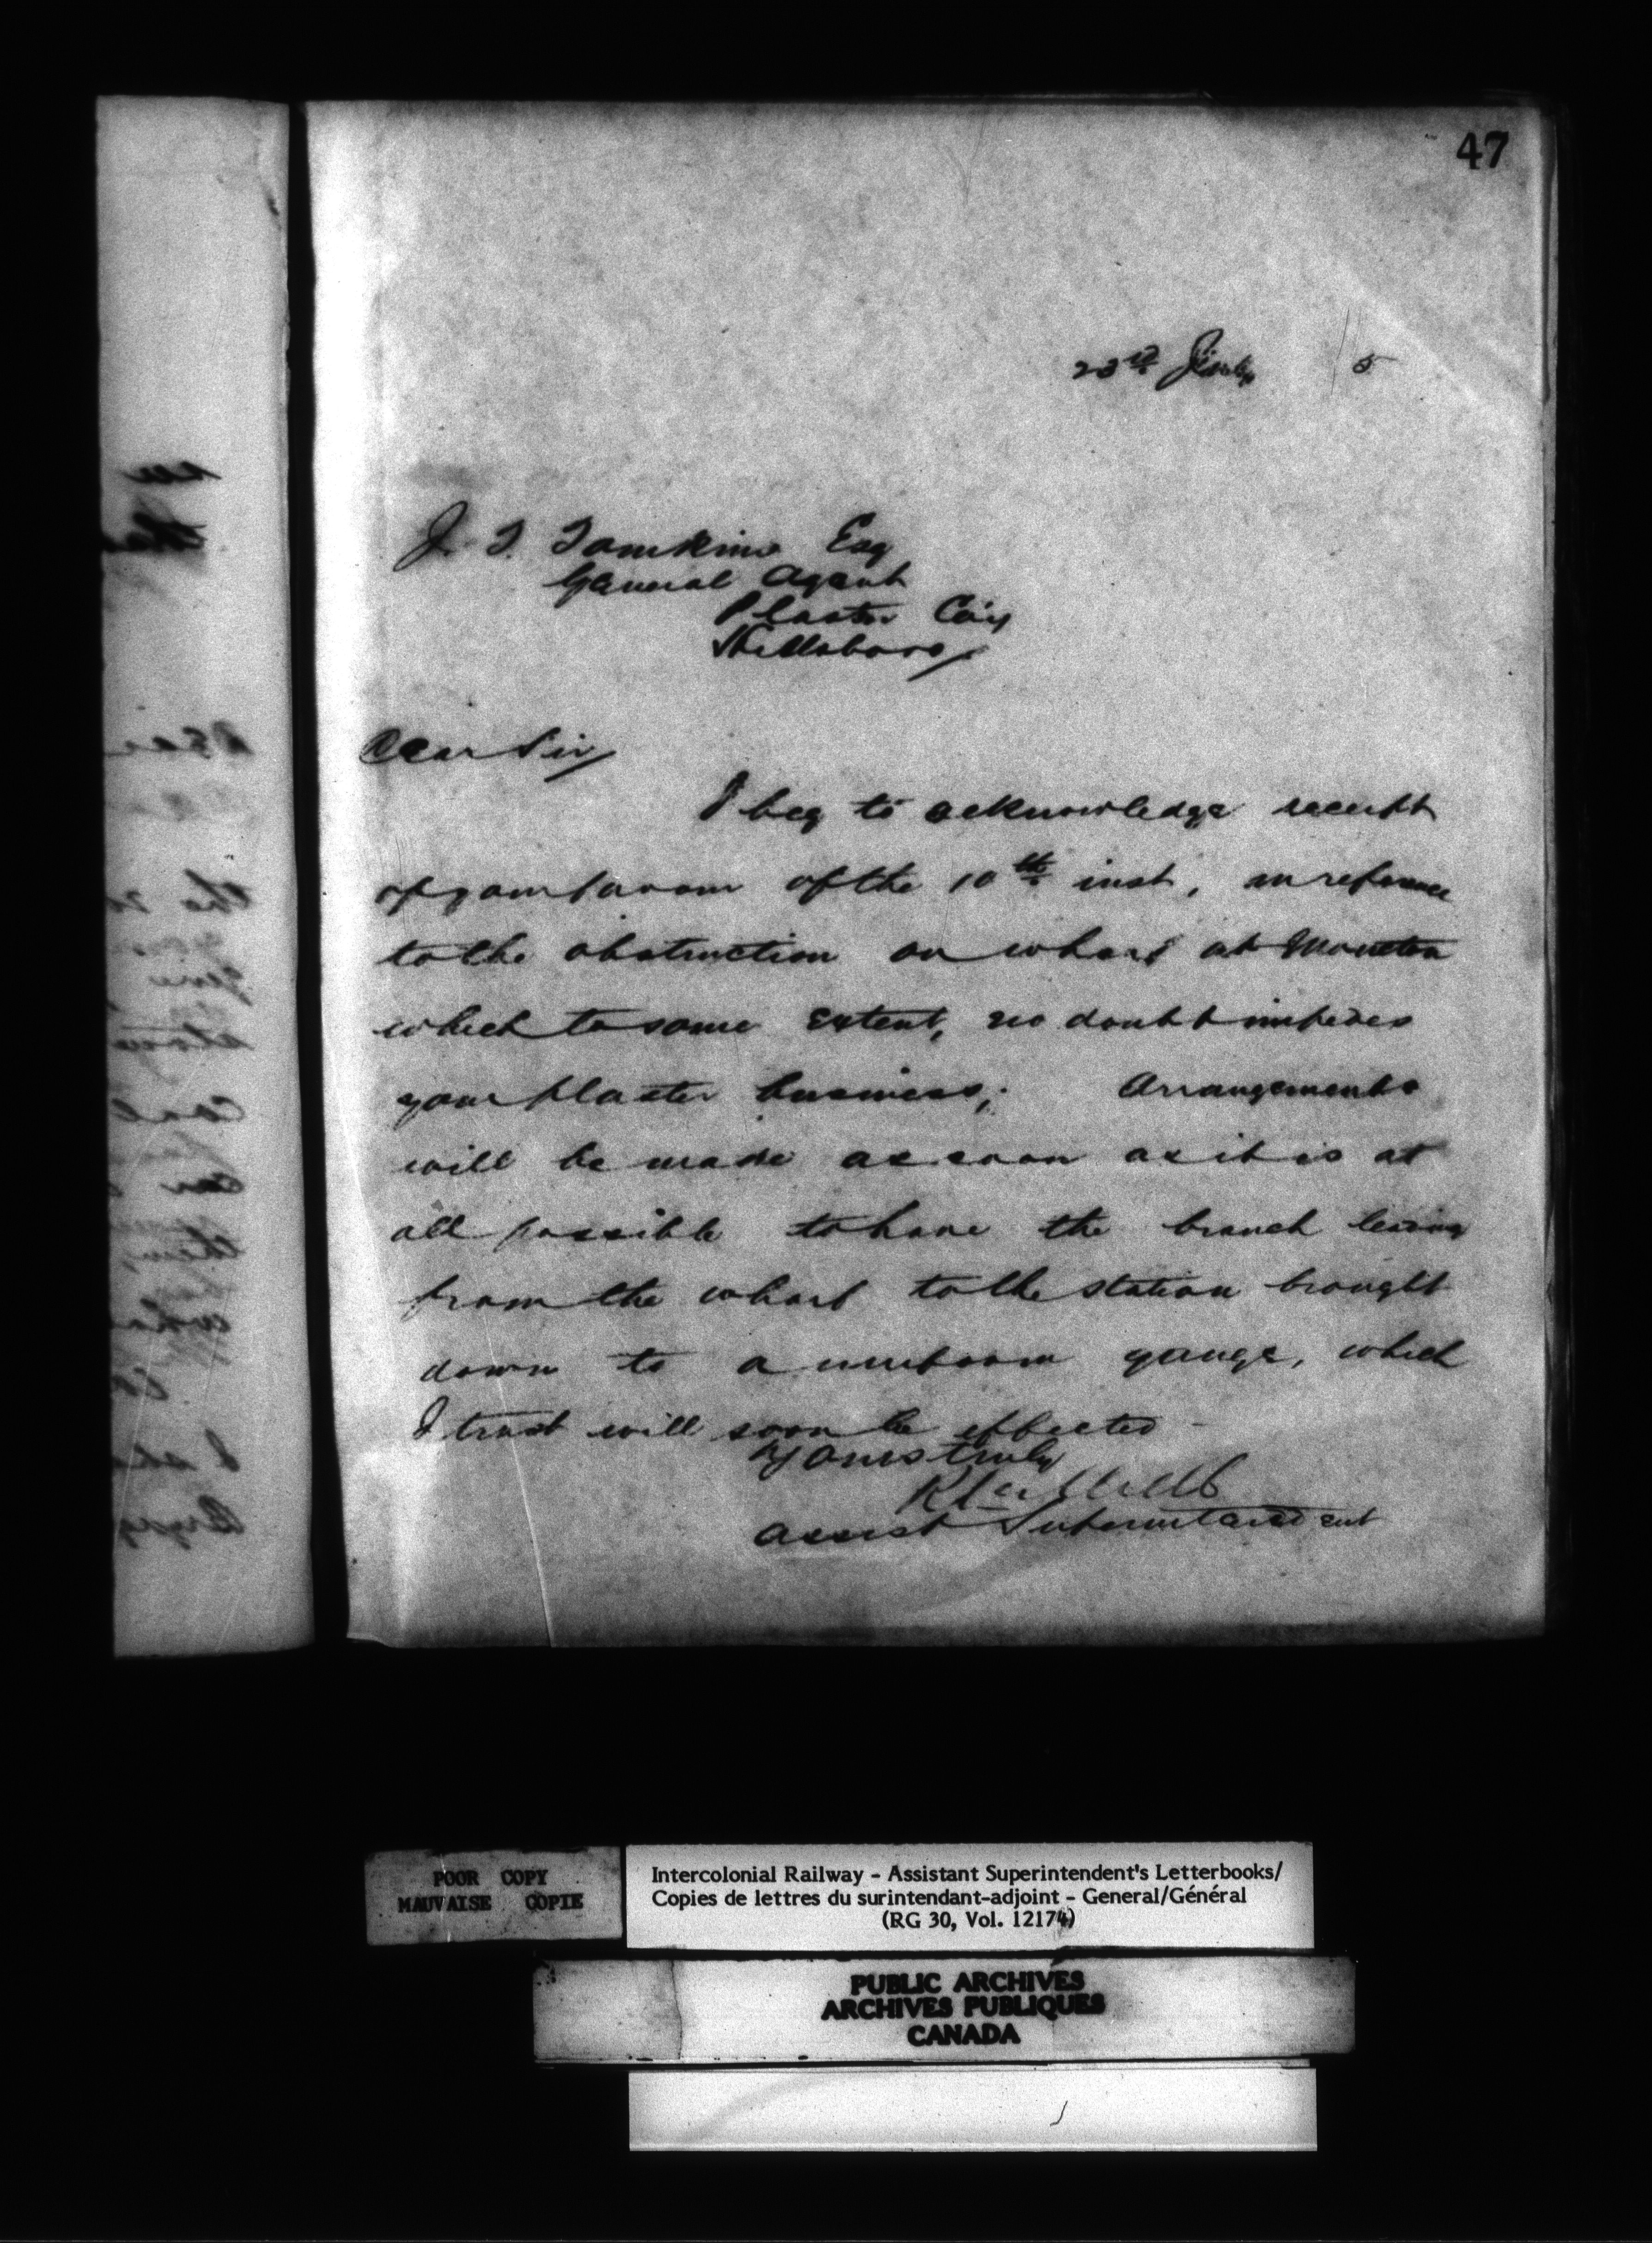 47
23rd July 5
J. T. Tomkins Esq
General Agent
Plaster Coy
Hillsboro
Dear Sir
I beg to acknowledge receipt
of your favour of the 10th inst, in reference
to the obstruction on wharf at Moncton
which to some extent, no doubt impedes
your plaster business; Arrangements
will be made as soon as it is at
all possible to have the branch leading
from the wharf to the station brought
down to a uniform gauge, which
I trust will soon be effected -
Yours truly
Assist Superintendent
POOR COPY
MAUVAISE COPIE
Intercolonial Railway - Assistant Superintendent's Letterbooks/
Copies de lettres du surintendant-adjoint - General/Général
(RG 30, Vol. 12174)
PUBLIC ARCHIVES
ARCHIVES PUBLIQUES
CANADA